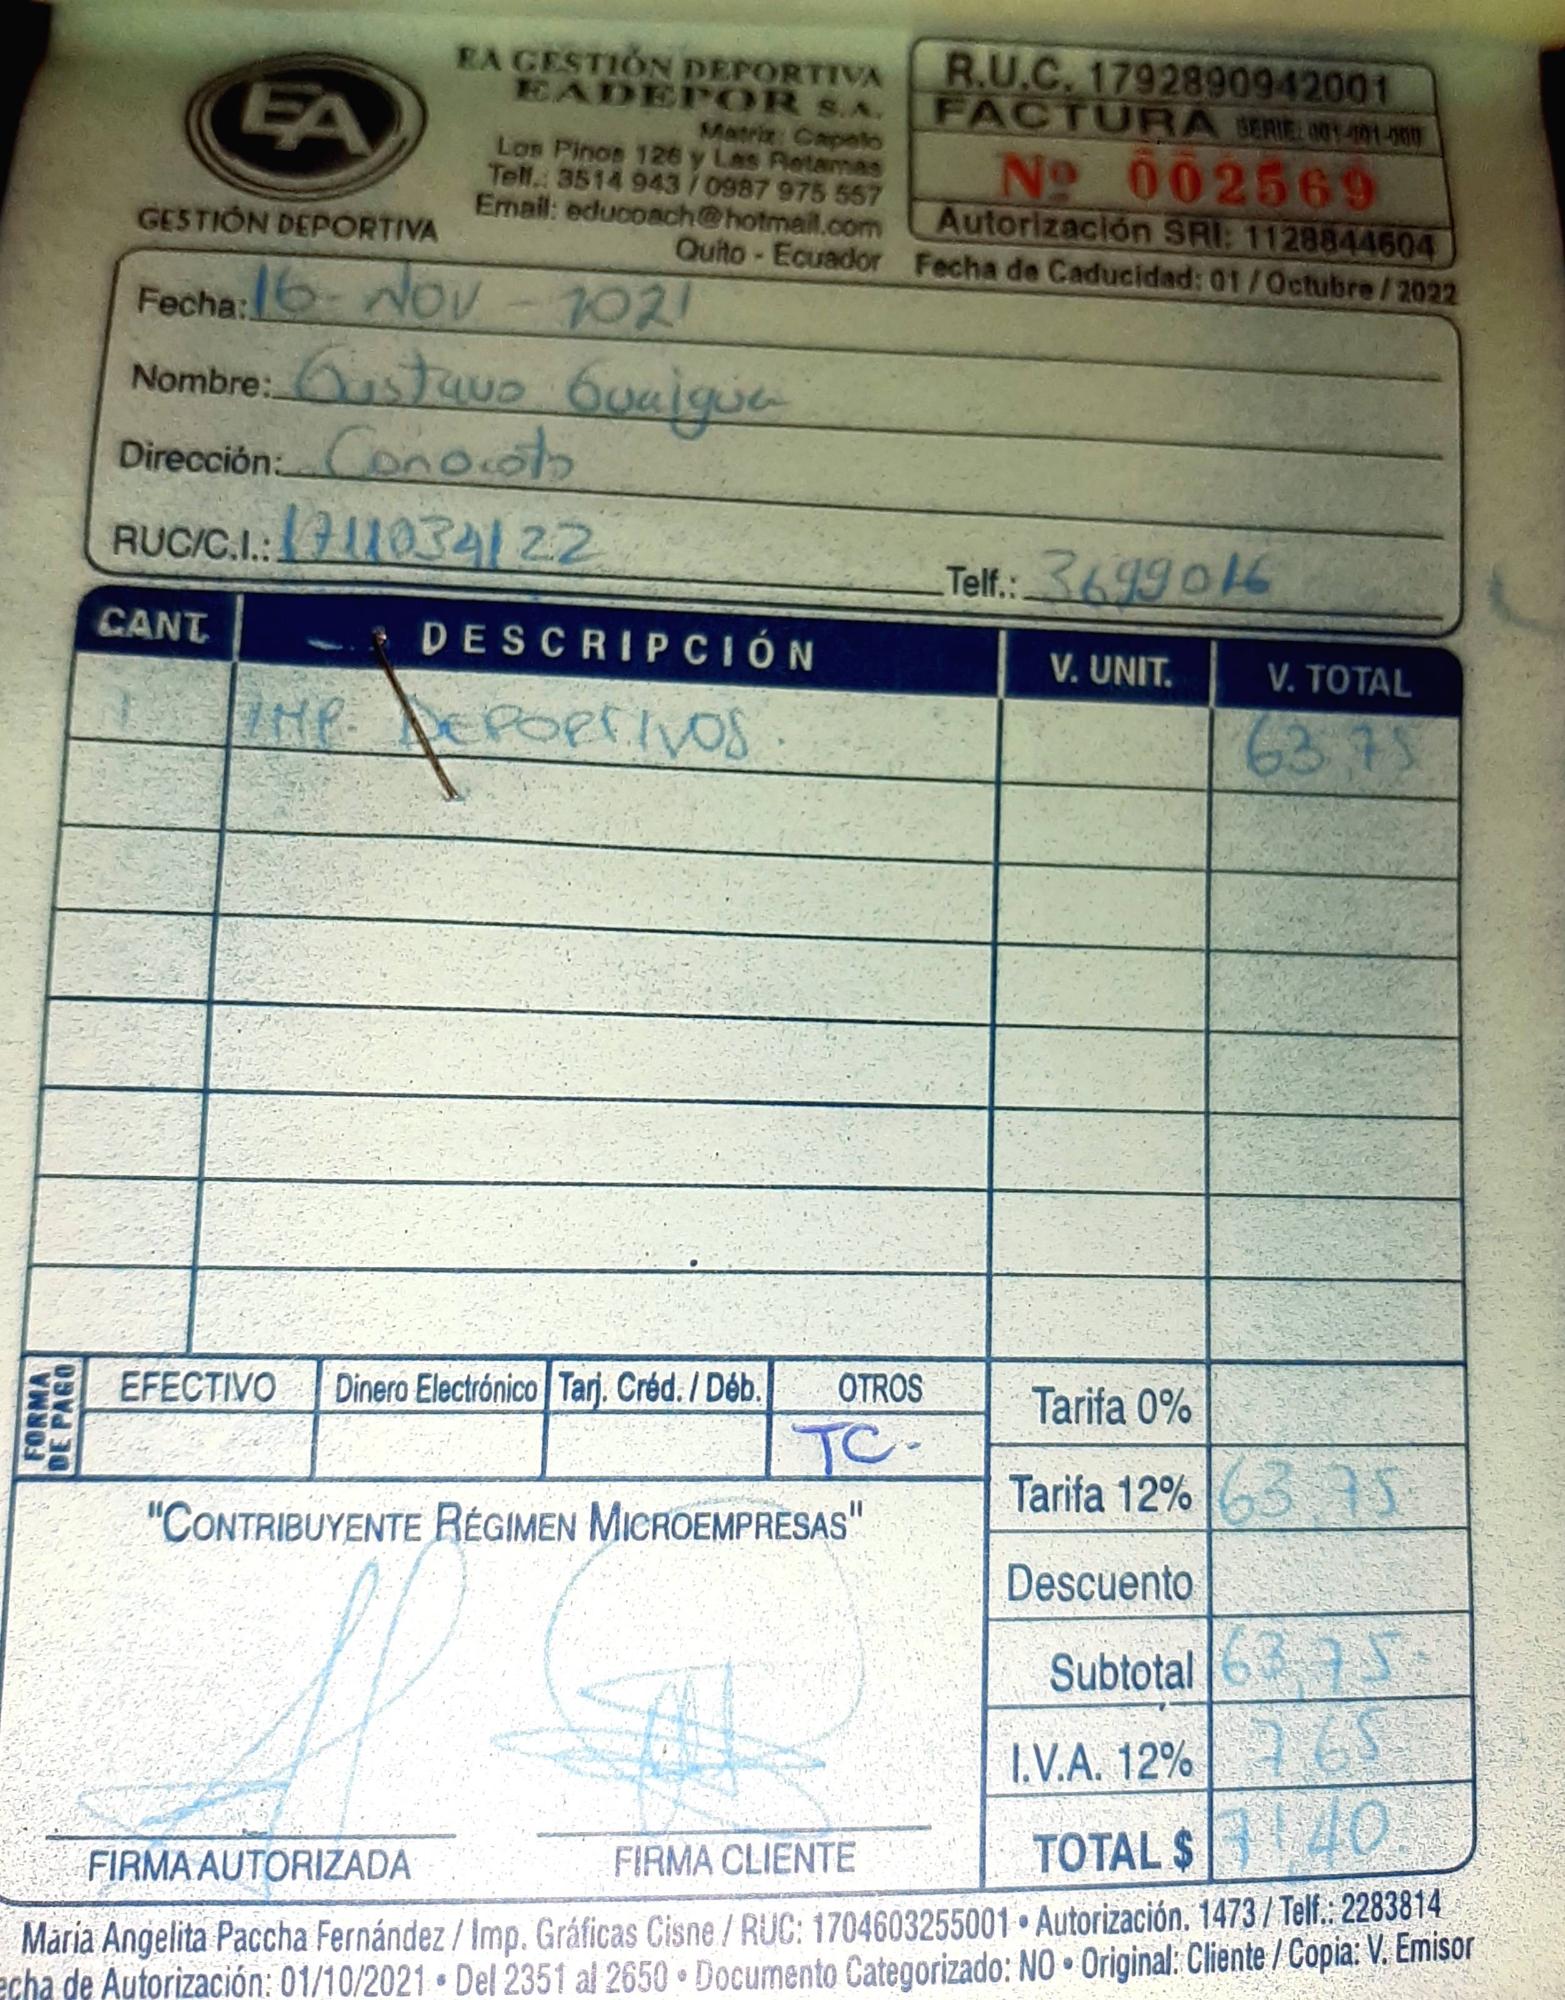 EA
GESTIÓN DEPORTIVA
EA GESTIÓN DEPORTIVA
EADEPOR S.A.
Matriz: Capelo
Los Pinos 126 y Las Retamas
Telf.: 3514 943 / 0987 975 557
Email: educoach@hotmail.com
Quito - Ecuador
R.U.C. 1792890942001
FACTURA SERIE: 001-001-000
Nº 002569
Autorización SRI: 1128844604
Fecha de Caducidad: 01 / Octubre / 2022
Fecha: 16 - NOV - 2021
Nombre: Gustavo Guaigua
Dirección: Conocoto
RUC/C.I.: 1711034122 Telf.: 3699016
CANT. DESCRIPCIÓN V. UNIT. V. TOTAL
1 IMP. DEPORTIVOS. 63,75
FORMA DE PAGO
EFECTIVO Dinero Electrónico Tarj. Créd. / Déb. OTROS
TC.
Tarifa 0%
Tarifa 12% 63,75
Descuento
Subtotal 63,75
I.V.A. 12% 7,65
TOTAL $ 71,40
"CONTRIBUYENTE RÉGIMEN MICROEMPRESAS"
FIRMA AUTORIZADA FIRMA CLIENTE
María Angelita Paccha Fernández / Imp. Gráficas Cisne / RUC: 1704603255001 • Autorización. 1473 / Telf.: 2283814
echa de Autorización: 01/10/2021 • Del 2351 al 2650 • Documento Categorizado: NO • Original: Cliente / Copia: V. Emisor